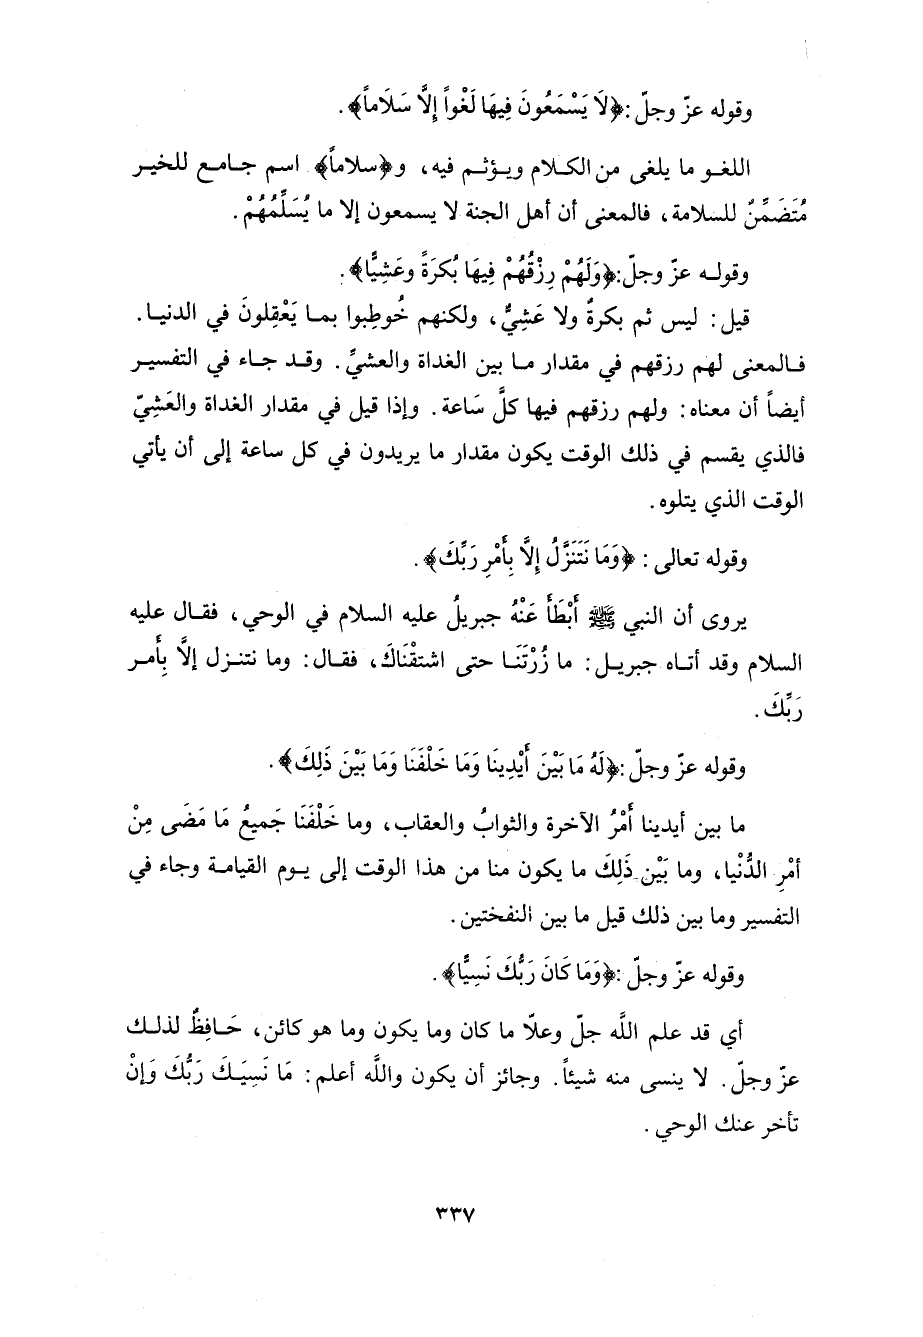 وقوله عزّ وجلّ :﴿لَا يَسْمَعُونَ فِيهَا لَغْواً إِلَّا سَلَاماً﴾.
اللغو ما يلغى من الكلام ويؤثم فيه، و﴿سلاماً﴾ اسم جامع للخير
مُتَضَمِّنٌ للسلامة، فالمعنى أن أهل الجنة لا يسمعون إلا ما يُسَلِّمُهُمْ.
وقوله عزّ وجلّ:﴿وَلَهُمْ رِزْقُهُمْ فِيهَا بُكرَةً وعَشِيًّا﴾.
قيل: ليس ثم بكرةٌ ولا عَشِيٌّ، ولكنهم خُوطِبوا بما يَعْقِلونَ في الدنيا.
فالمعنى لهم رزقهم في مقدار ما بين الغداة والعشيِّ. وقد جاء في التفسير
أيضاً أن معناه: ولهم رزقهم فيها كلَّ سَاعة. وإذا قيل في مقدار الغداة والعَشِيّ
فالذي يقسم في ذلك الوقت يكون مقدار ما يريدون في كل ساعة إلى أن يأتي
الوقت الذي يتلوه.
وقوله تعالى: ﴿وَمَا نَتَنَزَّلُ إِلَّا بِأَمْرِ رَبِّكَ﴾.
يروى أن النبي ﷺ أَبْطَأَ عَنْهُ جبريلُ عليه السلام في الوحي، فقال عليه
السلام وقد أتاه جبريل: ما زُرْتَنَا حتى اشتقْنَاكَ، فقال: وما نتنزل إلَّا بِأَمر
رَبِّكَ.
وقوله عزّ وجلّ:﴿لَهُ مَا بَيْنَ أَيْدِينَا وَمَا خَلْفَنَا وَمَا بَيْنَ ذَلِكَ﴾.
ما بين أيدينا أَمْرُ الآخرة والثوابُ والعقاب، وما خَلْفَنَا جَميعُ مَا مَضَى مِنْ
أمْرِ الدُّنْيا، وما بَيْن ذَلِكَ ما يكون منا من هذا الوقت إلى يوم القيامة وجاء في
التفسير وما بين ذلك قيل ما بين النفختين.
وقوله عزّ وجلّ:﴿وَمَا كَانَ رَبُّكَ نَسِيًّا﴾.
أي قد علم اللَّه جلّ وعلّا ما كان وما يكون وما هو كائن، حَافِظٌ لذلك
عزّ وجلّ. لا ينسى منه شيئاً. وجائز أن يكون واللَّه أعلم: مَا نَسِيَكَ رَبُّكَ وَإنْ
تأخر عنك الوحي.
٣٣٧